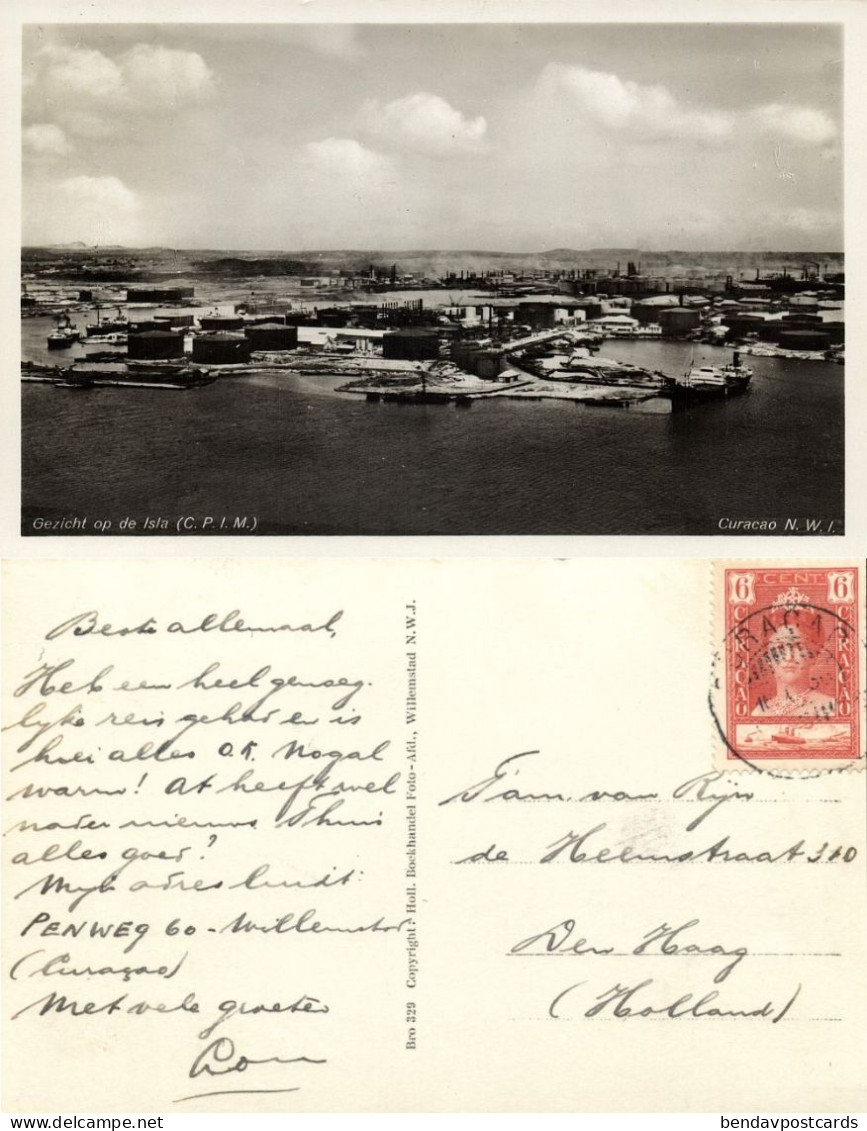 Gezicht op de Isla (C. P. I. M.)
Curacao N. W. I.
Beste allemaal,
Heb een heel genoeg-
lijke reis gehad en is
hier alles O.K. Nogal
warm! At heeft wel
nader nieuws. Thuis
alles goed?
Mijn adres luidt:
PENWEG 60 - Willemstad
(Curaçao)
Met vele groeten
Bro 329 Copyright: Holl. Boekhandel Foto-Afd., Willemstad N.W.J.
6 CENT 6
CURACAO CURACAO
Fam. van Rijn
de Heemstraat 310
Den Haag
(Holland)
bendavpostcards